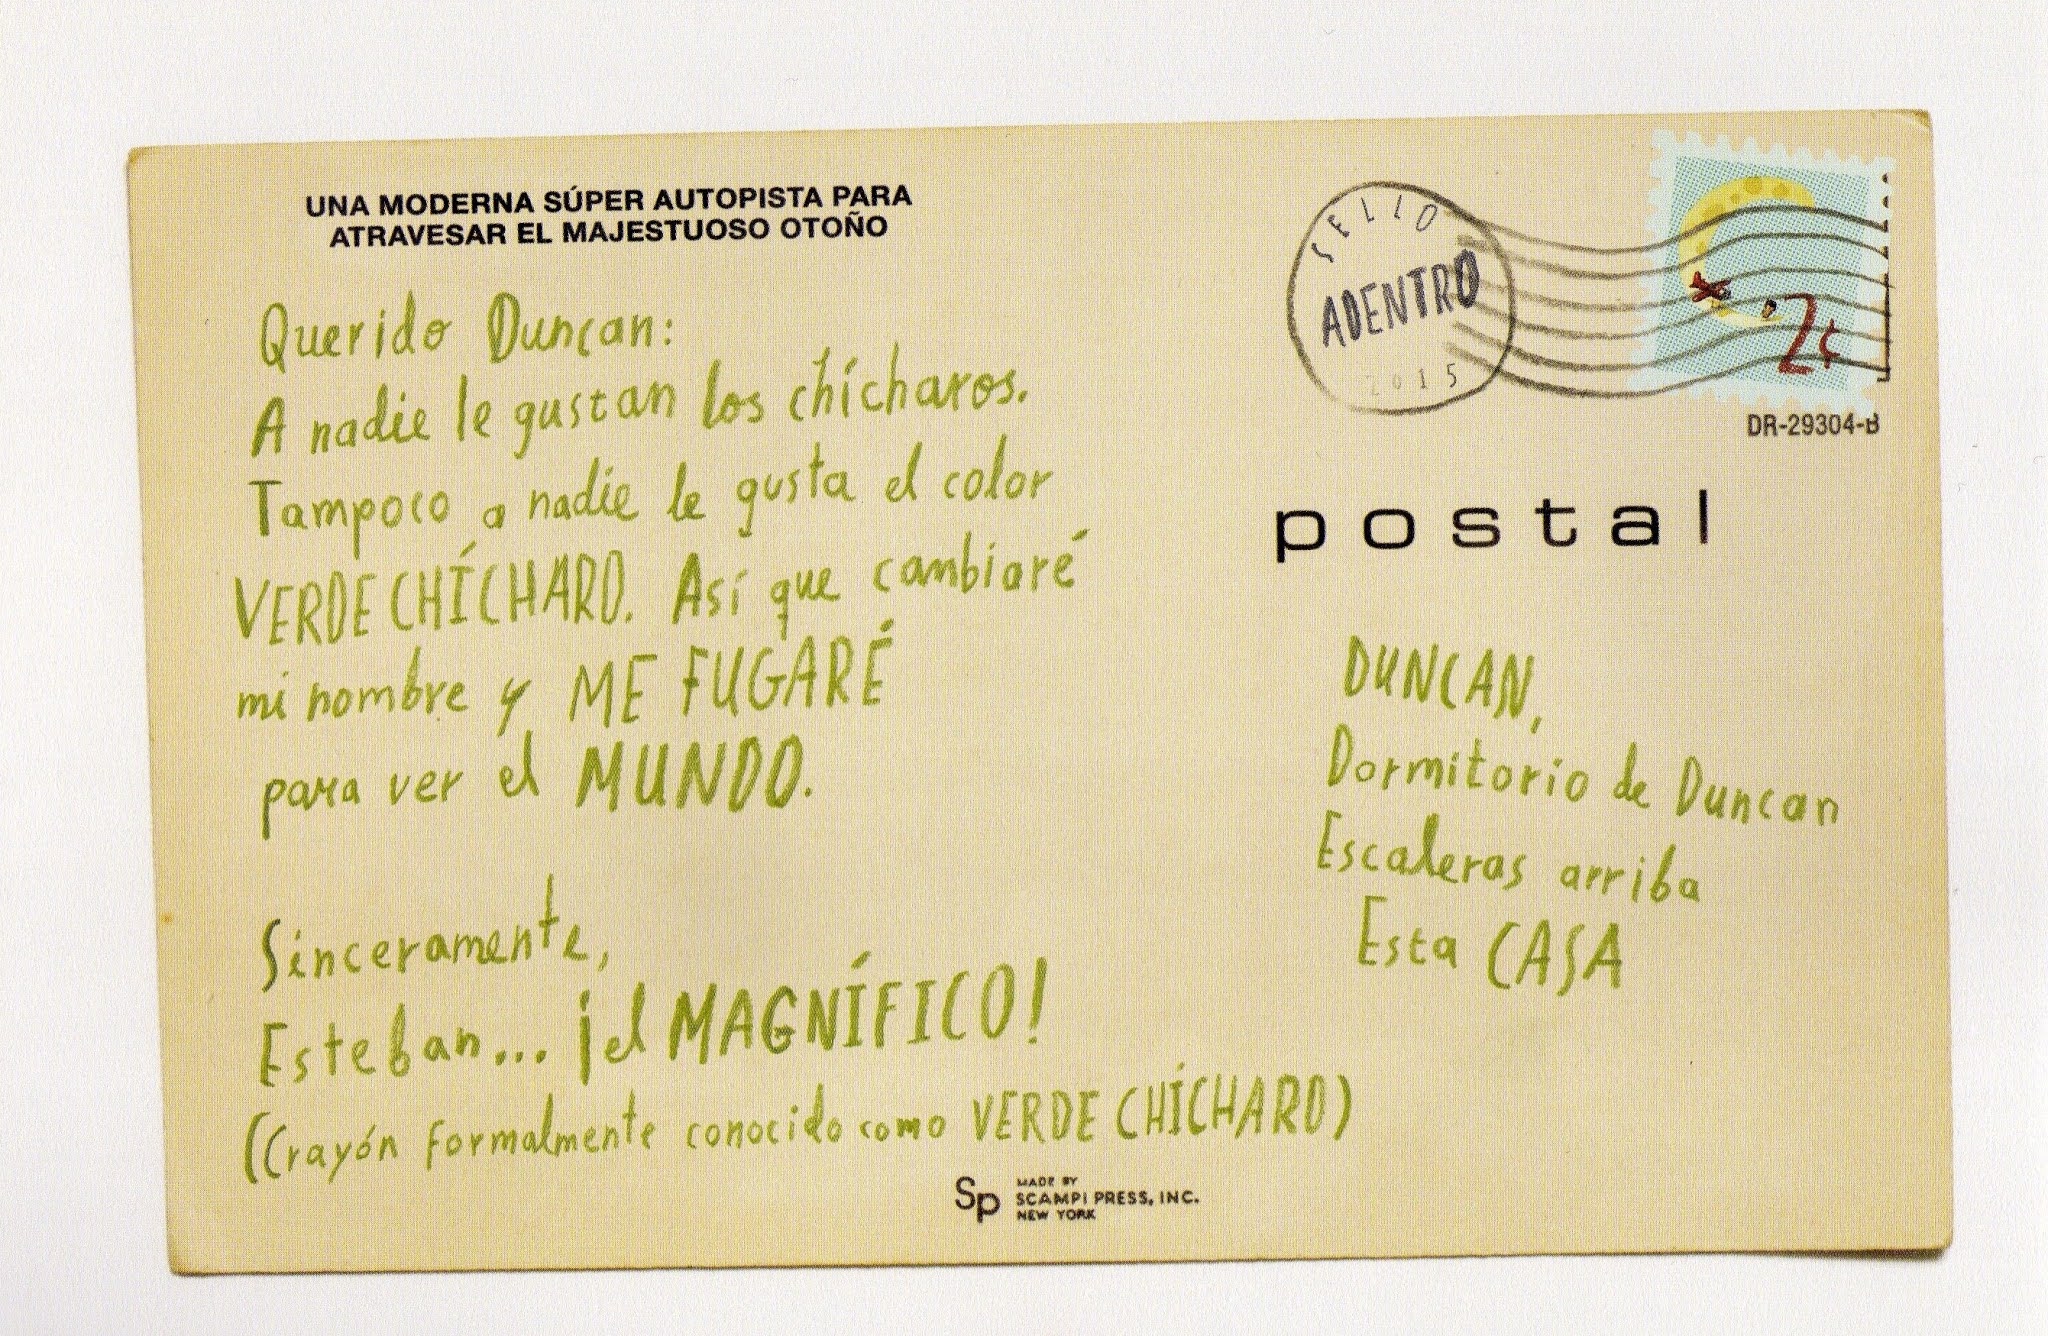 UNA MODERNA SÚPER AUTOPISTA PARA
ATRAVESAR EL MAJESTUOSO OTOÑO
Querido Duncan:
A nadie le gustan los chícharos.
Tampoco a nadie le gusta el color
VERDE CHÍCHARO. Así que cambiaré
mi nombre y ME FUGARÉ
para ver el MUNDO.
Sinceramente,
Esteban... ¡el MAGNÍFICO!
(Crayón formalmente conocido como VERDE CHÍCHARO)
SELLO
ADENTRO
2015
2¢
DR-29304-B
postal
DUNCAN,
Dormitorio de Duncan
Escaleras arriba
Esta CASA
Sp
MADE BY
SCAMPI PRESS, INC.
NEW YORK